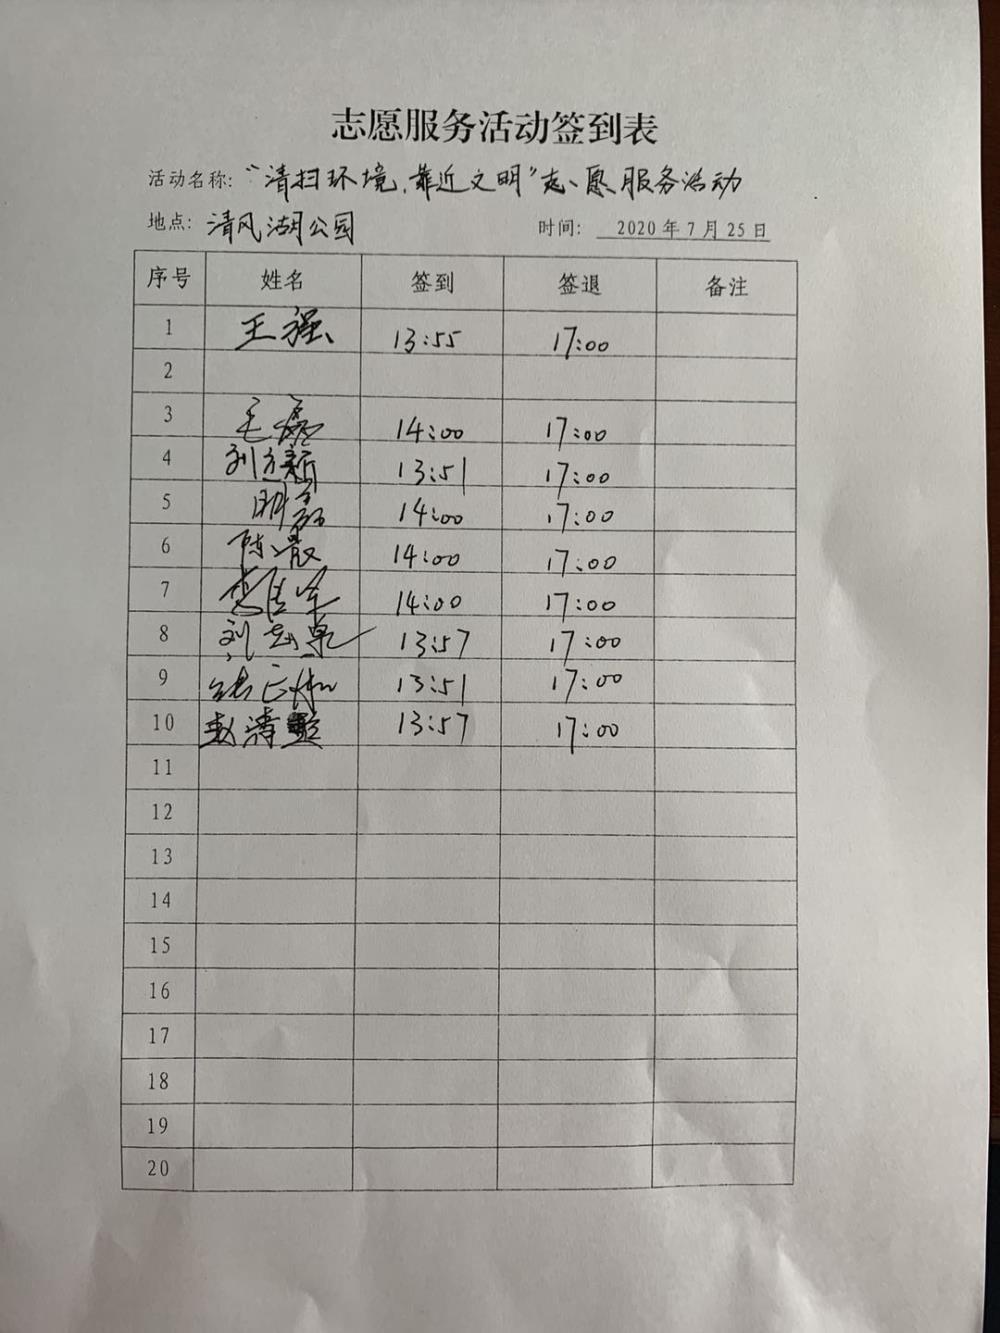 志愿服务活动签到表
活动名称："清扫环境，靠近文明"志愿服务活动
地点：清风湖公园 时间：2020年7月25日
序号 姓名 签到 签退 备注
1 王强 13:55 17:00
2
3 毛磊 14:00 17:00
4 刘立新 13:51 17:00
5 明磊 14:00 17:00
6 陈晨 14:00 17:00
7 14:00 17:00
8 刘志泉 13:57 17:00
9 13:51 17:00
10 赵清 13:57 17:00
11
12
13
14
15
16
17
18
19
20